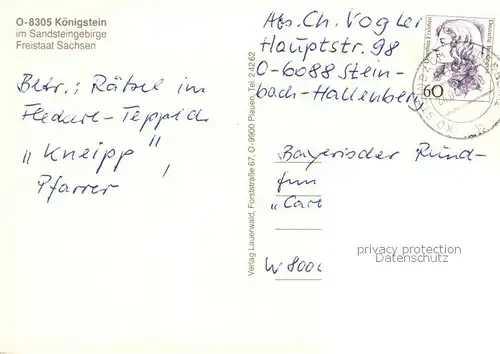 O-8305 Königstein
im Sandsteingebirge
Freistaat Sachsen
Betr.: Rätsel im
Flederl-Teppich
„Kneipp"
Pfarrer
Verlag Lauerwald, Forststraße 67, O-9900 Plauen, Tel. 24262
Abs. Ch. Vogler
Hauptstr. 98
O-6088 Stein-
bach-Hallenberg
60
Bayerischer Rund-
fun
„Car
W 800
privacy protection
Datenschutz